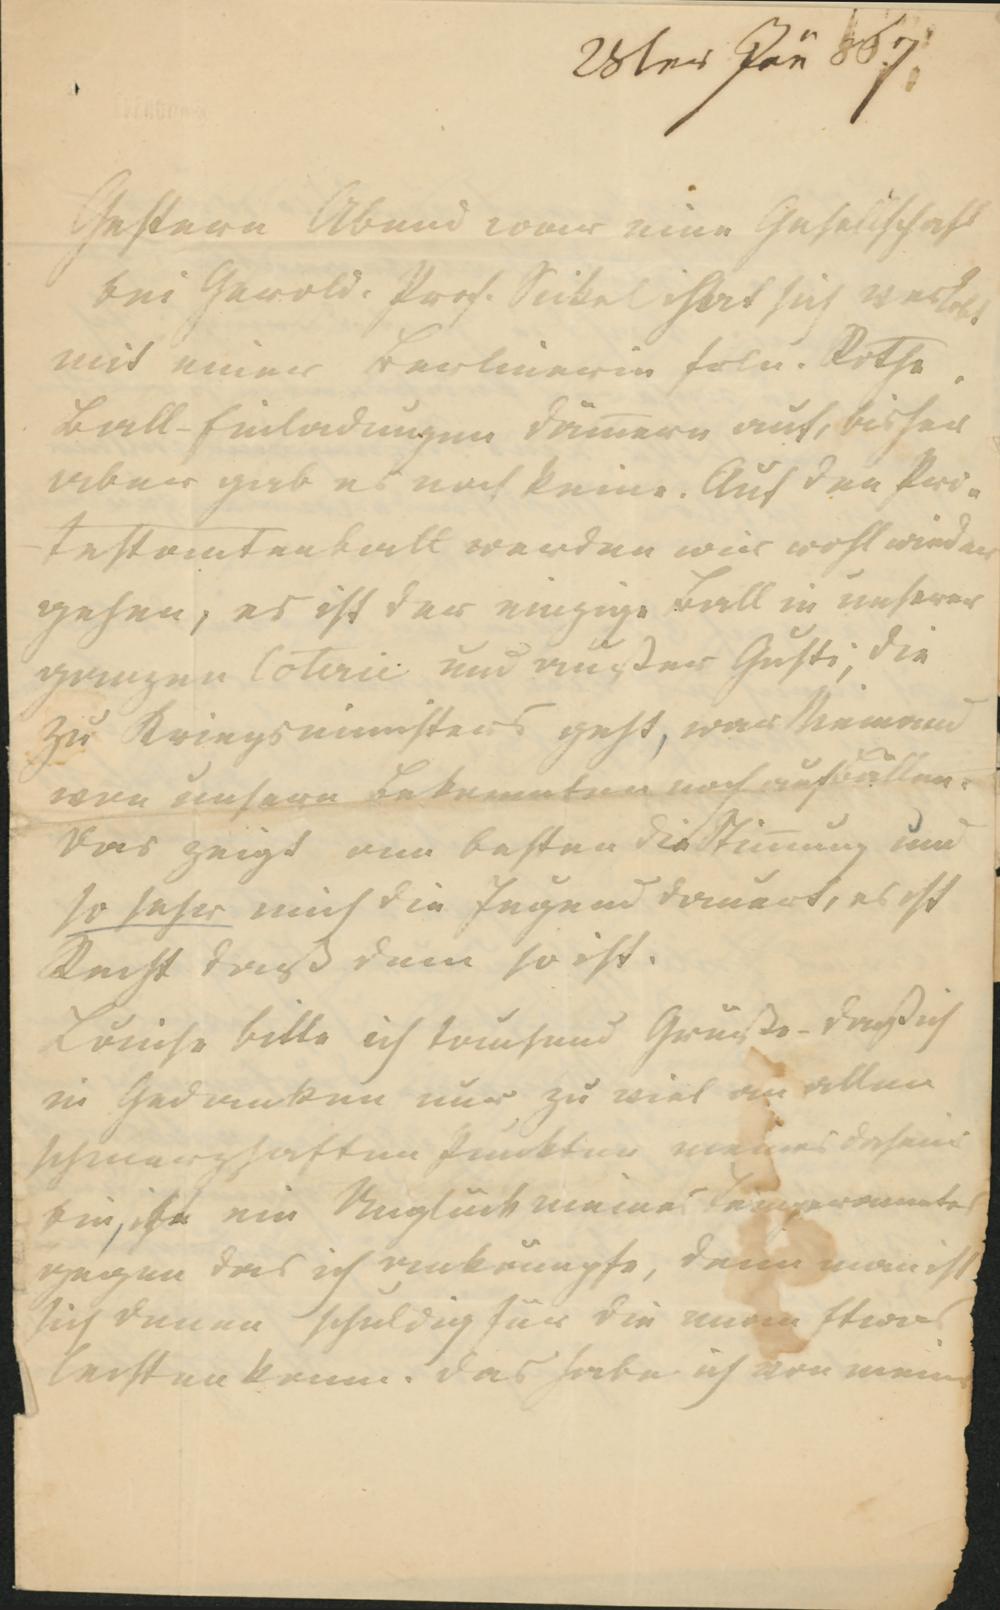 28ter Jän 867.
Gestern Abend war eine Gesellschaft
bei Gerold. Prof. Sickel hat sich verlobt
mit einer Berlinerin Frln. Rothe.
Ball-Einladungen dämmern auf, bisher
aber gab es noch keine. Auf den Pro-
testantenball werden wir wohl wieder
gehen, es ist der einzige Ball in unserer
ganzen Coterie und außer Gusti, die
zu Kriegsministers geht, war Niemand
von unsern Bekannten noch auf Bällen.
Das zeigt am besten die Stimmung und
so sehr mich die Jugend dauert, es ist
Recht daß dem so ist.
Louise bitte ich tausend Grüße - daß ich
in Gedanken nur zu viel an allen
schmerzhaften Punkten meines Daseins
bin, ist ein Unglück meines Temperamentes
gegen das ich ankämpfe, denn man ist
sich denen schuldig für die man etwas
leisten kann. Das habe ich von mein